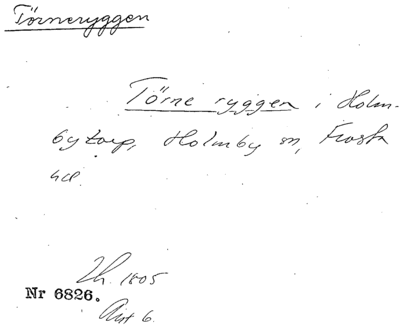 Törneryggen
Törne ryggen i Holm-
bytorp, Holmby sn, Frosta
hd.
Lh. 1805
Nr 6826.
Akt 6.